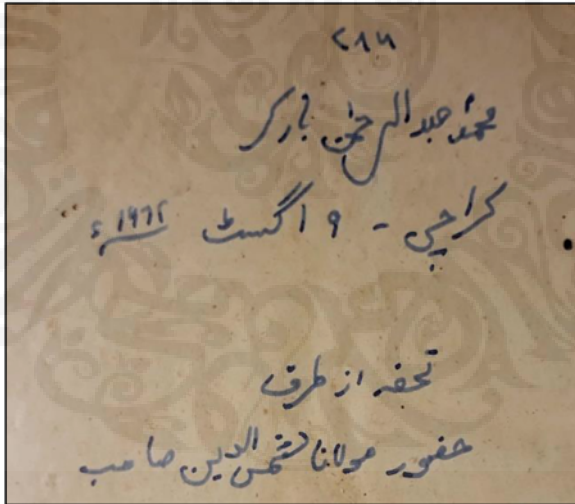 ۷۸۶
محمد عبد الرحمٰن بارکر
کراچی - ۹ اگسٹ ۱۹۶۲ء
تحفہ از طرف
حضور مولانا شمس الدین صاحب